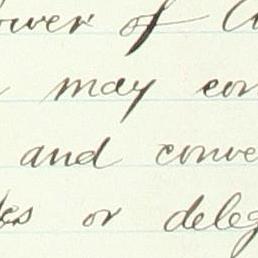 ower of A
may con
and conve
des or deleg